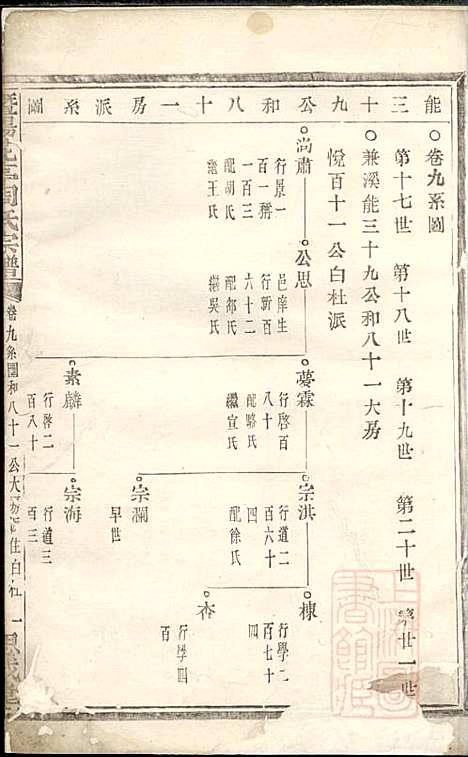 能三十九公和八十一房派系圖
卷九系圖
第十七世 第十八世 第十九世 第二十世 第廿一世
兼溪能三十九公和八十一大房
悅百十一公白杜派
尚肅
行景一
百一稱
一百三
配胡氏
繼王氏
公思
邑庠生
行新百
六十二
配郁氏
繼吳氏
夢霖
行啓百
八十
配駱氏
繼宣氏
宗淇
行道二
百六十
四
配徐氏
棟
行學二
百七十
四
杏
行學四
百
宗瀾
早世
素麟
行啓二
百八十
宗海
行道三
百三
周氏宗譜
卷九系圖和八十一公大房派住白杜 一
上海圖書館藏